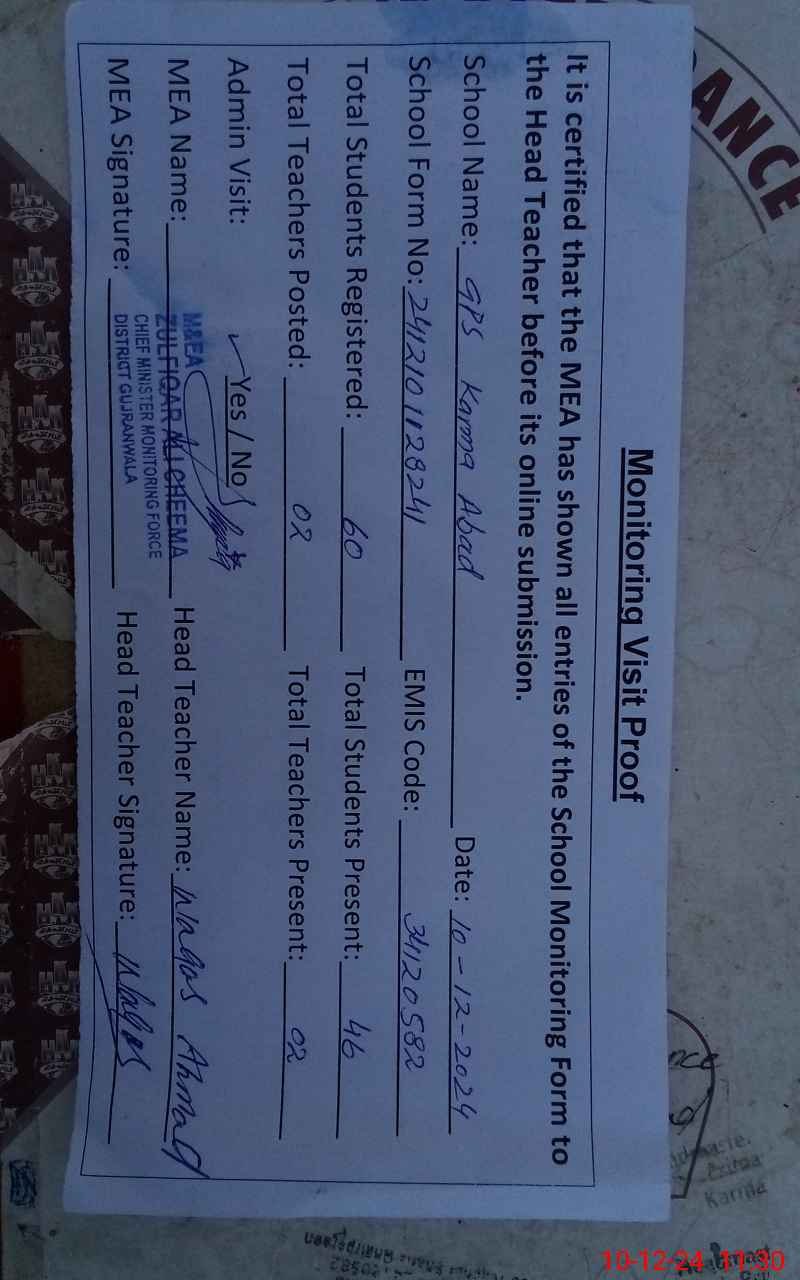 Monitoring Visit Proof
It is certified that the MEA has shown all entries of the School Monitoring Form to
the Head Teacher before its online submission.
School Name: GPS Karma Abad Date: 10-12-2024
School Form No: 2412101128241 EMIS Code: 34120582
Total Students Registered: 60 Total Students Present: 46
Total Teachers Posted: 02 Total Teachers Present: 02
Admin Visit: ✓ Yes / No
MEA Name: Head Teacher Name: Waqas Ahmad
MEA Signature: Head Teacher Signature: Waqas
M&EA
ZULFIQAR ALI CHEEMA
CHIEF MINISTER MONITORING FORCE
DISTRICT GUJRANWALA
ANCE
Karma
10-12-24 11:30